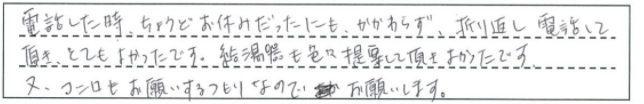 電話した時、ちょうどお休みだったにも、かかわらず、折り返し電話して
頂き、とてもよかったです。給湯器も色々提案して頂きよかったです。
又、コンロもお願いするつもりなのでお願いします。